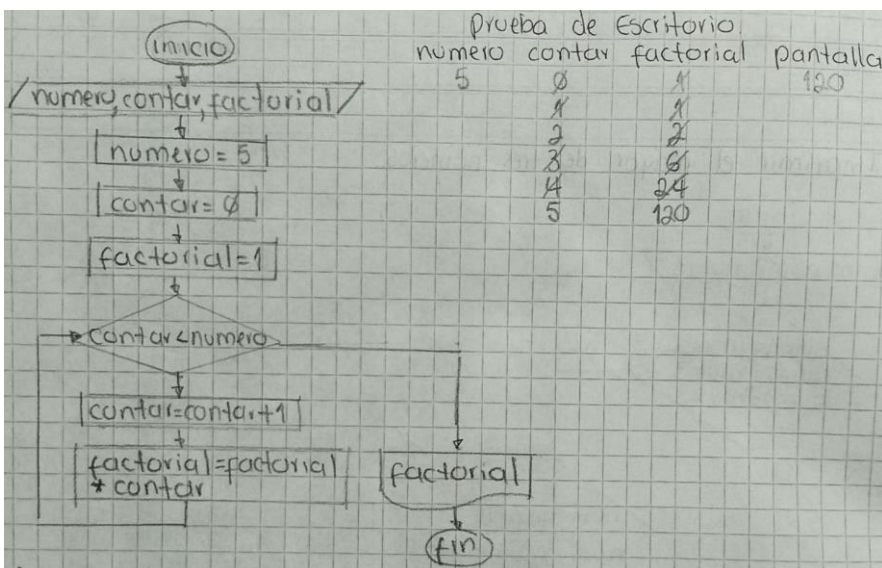 inicio
numero, contar, factorial
numero = 5
contar = 0
factorial = 1
contar < numero
contar = contar + 1
factorial = factorial
* contar
factorial
fin
Prueba de Escritorio
numero contar factorial pantalla
5 0 1 120
1 1
2 2
3 6
4 24
5 120